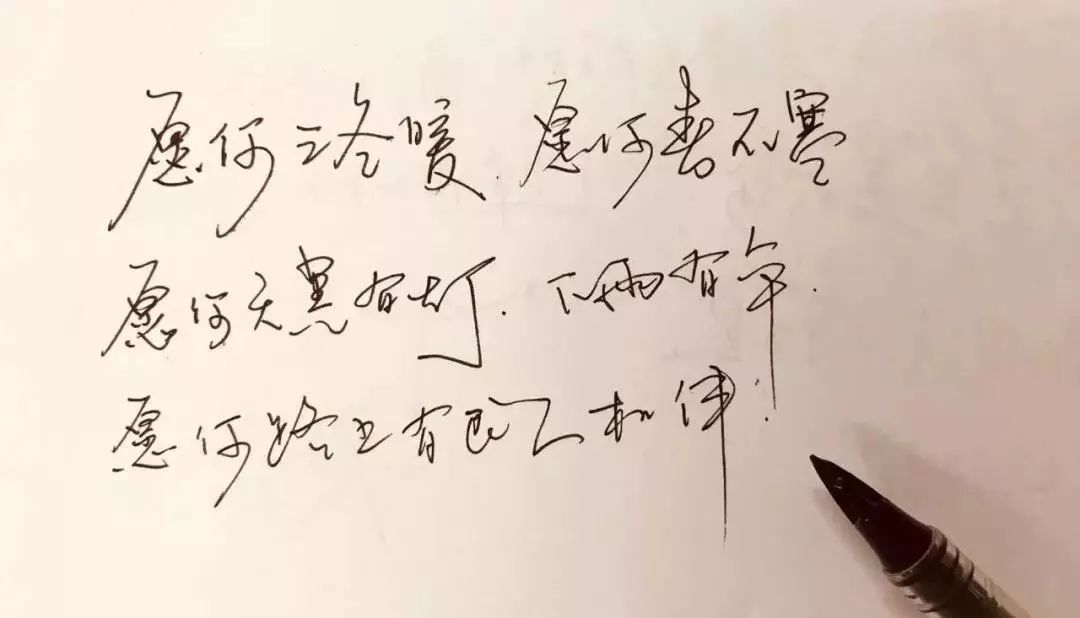 愿你三冬暖，愿你春不寒
愿你天黑有灯，下雨有伞。
愿你路上有良人相伴！